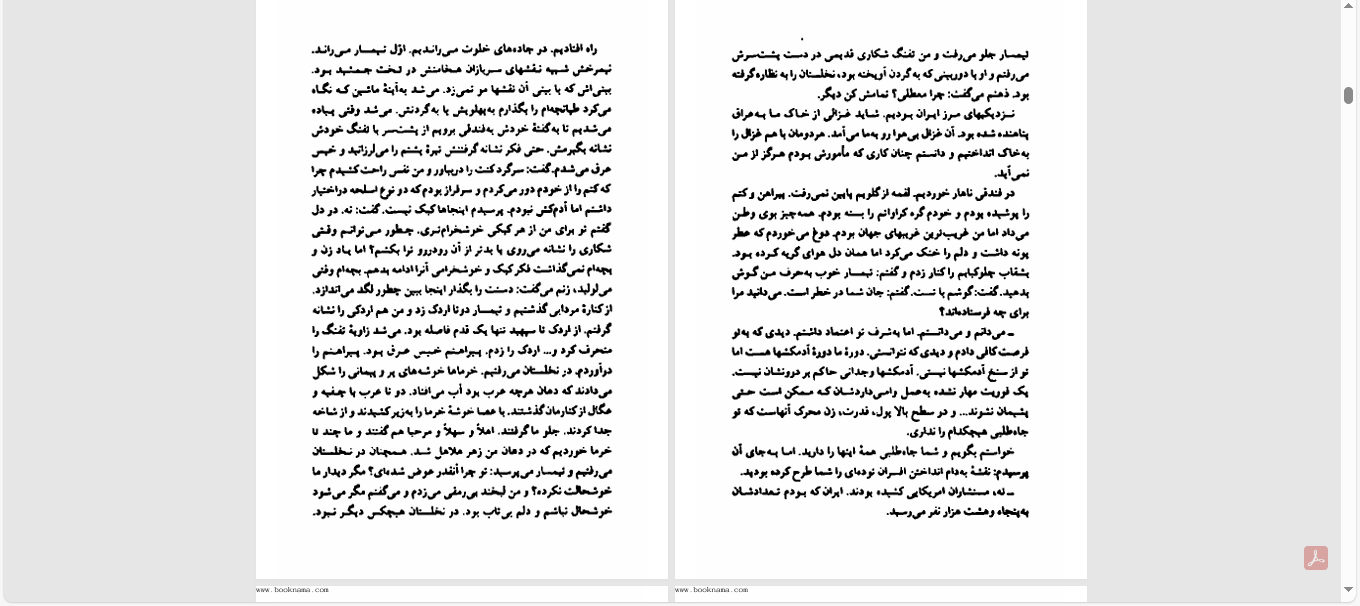 راه افتادیم. در جاده‌های خلوت می‌راندیم. اوّل تیمسار می‌راند.
نیمرخش شبیه نقشهای سربازان هخامنش در تخت جمشید بود.
بینی‌اش که با بینی آن نقشها مو نمی‌زد. می‌شد به‌آینهٔ ماشین که نگاه
می‌کرد طپانچه‌ام را بگذارم به‌پهلویش یا به‌گردنش. می‌شد وقتی پیاده
می‌شدیم تا به‌گفتهٔ خودش به‌فندقی برویم از پشت‌سر با تفنگ خودش
نشانه بگیرمش. حتی فکر نشانه گرفتنش تیرهٔ پشتم را می‌لرزانید و خیس
عرق می‌شدم. گفت: سرگرد کتت را دربیاور و من نفس راحت کشیدم چرا
که کتم را از خودم دور می‌کردم و سرفراز بودم که دو نوع اسلحه دراختیار
داشتم اما آدم‌کش نبودم. پرسیدم اینجاها کبک نیست. گفت: نه. در دل
گفتم تو برای من از هر کبکی خوشخرام‌تری. چطور می‌توانم وقتی
شکاری را نشانه می‌روی یا بدتر از آن رودررو ترا بکشم؟ اما یاد زن و
بچه‌ام نمی‌گذاشت فکر کبک و خوشخرامی آنرا ادامه بدهم. بچه‌ام وقتی
می‌لولید، زنم می‌گفت: دستت را بگذار اینجا ببین چطور لگد می‌اندازد.
از کنارهٔ مردابی گذشتیم و تیمسار دوتا اردک زد و من هم اردکی را نشانه
گرفتم. از اردک تا سپهبد تنها یک قدم فاصله بود. می‌شد زاویهٔ تفنگ را
منحرف کرد و... اردک را زدم. پیراهنم خیس عرق بود. پیراهنم را
درآوردم. در نخلستان می‌رفتیم. خرماها خوشه‌های پر و پیمانی را شکل
می‌دادند که دهان هرچه عرب بود آب می‌افتاد. دو تا عرب با چفیه و
عگال از کنارمان گذشتند. با عصا خوشهٔ خرما را به‌زیر کشیدند و از شاخه
جدا کردند. جلو ما گرفتند. اهلاً و سهلاً و مرحبا هم گفتند و ما چند تا
خرما خوردیم که در دهان من زهر هلاهل شد. همچنان در نخلستان
می‌رفتیم و تیمسار می‌پرسید: تو چرا آنقدر عوض شده‌ای؟ مگر دیدار ما
خوشحالت نکرده؟ و من لبخند بی‌رمقی می‌زدم و می‌گفتم مگر می‌شود
خوشحال نباشم و دلم بی‌تاب بود. در نخلستان هیچکس دیگر نبود.
www.booknama.com
تیمسار جلو می‌رفت و من تفنگ شکاری قدیمی در دست پشت‌سرش
می‌رفتم و او با دوربینی که به‌گردن آویخته بود، نخلستان را به نظاره گرفته
بود. ذهنم می‌گفت: چرا معطلی؟ تمامش کن دیگر.
نزدیکیهای مرز ایران بودیم. شاید غزالی از خاک ما به‌عراق
پناهنده شده بود. آن غزال بی‌هوا رو به‌ما می‌آمد. هردومان با هم غزال را
به‌خاک انداختیم و دانستم چنان کاری که مأمورش بودم هرگز از من
نمی‌آید.
در فندقی ناهار خوردیم. لقمه از گلویم پایین نمی‌رفت. پیراهن و کتم
را پوشیده بودم و خودم گره کراواتم را بسته بودم. همه‌چیز بوی وطن
می‌داد اما من غریب‌ترین غریبهای جهان بودم. دوغ می‌خوردم که عطر
پونه داشت و دلم را خنک می‌کرد اما همان دل هوای گریه کرده بود.
بشقاب چلوکبابم را کنار زدم و گفتم: تیمسار خوب به‌حرف من گوش
بدهید. گفت: گوشم با تست. گفتم: جان شما در خطر است. می‌دانید مرا
برای چه فرستاده‌اند؟
ـ می‌دانم و می‌دانستم. اما به‌شرف تو اعتماد داشتم. دیدی که به‌تو
فرصت کافی دادم و دیدی که نتوانستی. دورهٔ ما دورهٔ آدمکشها هست اما
تو از سنخ آدمکشها نیستی. آدمکشها وجدانی حاکم بر درونشان نیست.
یک فوریت مهار نشده به‌عمل وامی‌داردشان که ممکن است حتی
پشیمان نشوند... و در سطح بالا پول، قدرت، زن محرک آنهاست که تو
جاه‌طلبی هیچکدام را نداری.
خواستم بگویم و شما جاه‌طلبی همهٔ اینها را دارید. اما به‌جای آن
پرسیدم: نقشهٔ به‌دام انداختن افسران توده‌ای را شما طرح کرده بودید.
ـ نه، مستشاران امریکایی کشیده بودند. ایران که بودم تعدادشان
به‌پنجاه وهشت هزار نفر می‌رسید.
www.booknama.com